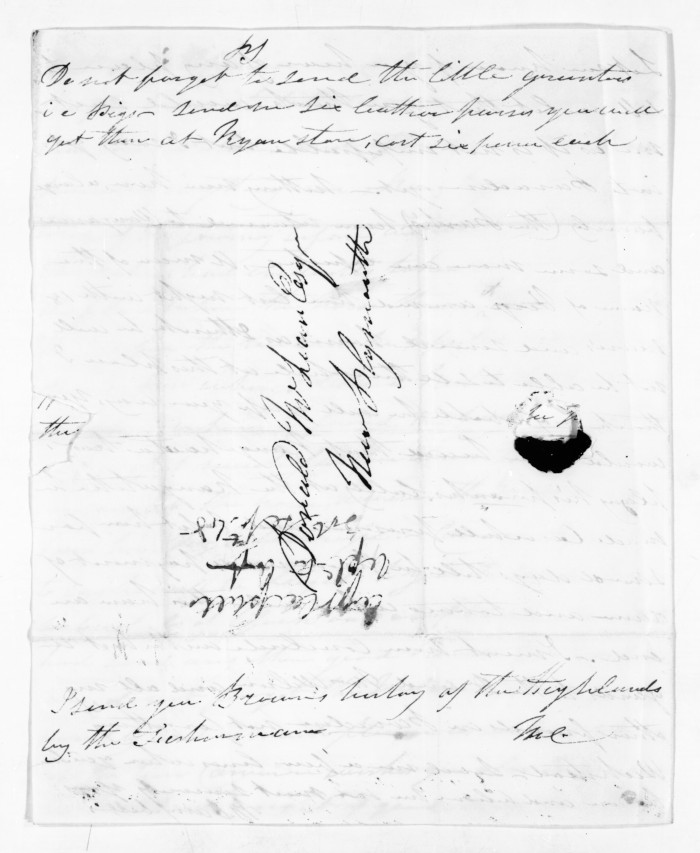 PS
Do not forget to send the little grunters
i e Pigs - send me six leather purses you will
get them at Ryan store, cost six pence each
Donald McLean Esqr
New Plymouth
the
I send you Browns history of the Highlands
by the Fisherman
McC